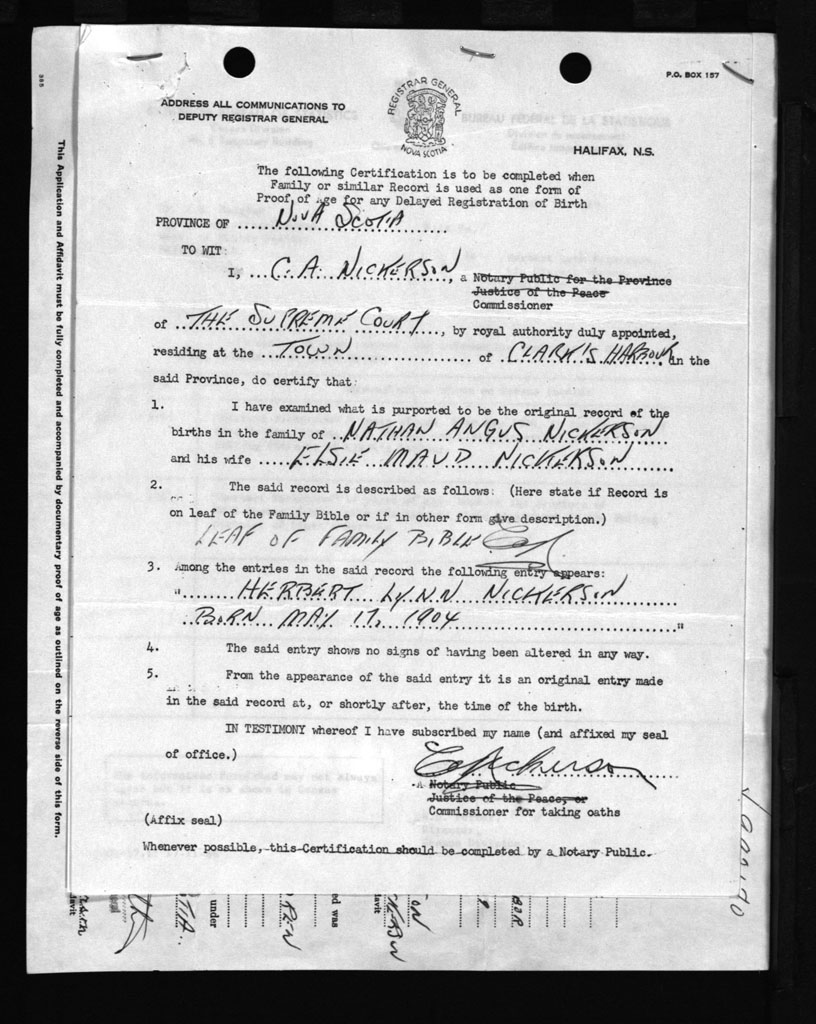 P.O. BOX 157
ADDRESS ALL COMMUNICATIONS TO
DEPUTY REGISTRAR GENERAL
REGISTRAR GENERAL
NOVA SCOTIA
HALIFAX, N.S.
The following Certification is to be completed when
Family or similar Record is used as one form of
Proof of Age for any Delayed Registration of Birth
PROVINCE OF NOVA SCOTIA
TO WIT:
I, C. A. NICKERSON, a Notary Public for the Province
Justice of the Peace
Commissioner
of THE SUPREME COURT, by royal authority duly appointed,
residing at the TOWN of CLARK'S HARBOUR in the
said Province, do certify that:
1. I have examined what is purported to be the original record of the
births in the family of NATHAN ANGUS NICKERSON
and his wife ELSIE MAUD NICKERSON
2. The said record is described as follows: (Here state if Record is
on leaf of the Family Bible or if in other form give description.)
LEAF OF FAMILY BIBLE
3. Among the entries in the said record the following entry appears:
" HERBERT LYNN NICKERSON
BORN MAY 17, 1904 "
4. The said entry shows no signs of having been altered in any way.
5. From the appearance of the said entry it is an original entry made
in the said record at, or shortly after, the time of the birth.
IN TESTIMONY whereof I have subscribed my name (and affixed my seal
of office.)
CANickerson
A Notary Public
Justice of the Peace, or
Commissioner for taking oaths
(Affix seal)
Whenever possible, this Certification should be completed by a Notary Public.
This Application and Affidavit must be fully completed and accompanied by documentary proof of age as outlined on the reverse side of this form.
under
ed was